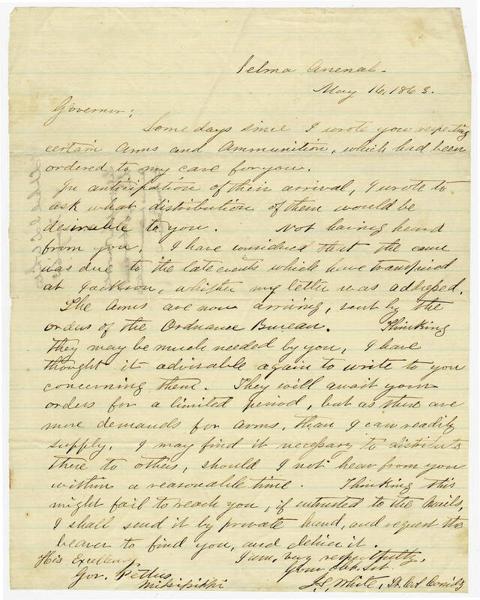 Selma Arsenal.
May 16, 1863.
Governor;
Some days since I wrote you respecting
certain Arms and Ammunition, which had been
ordered to my care for you.
In anticipation of their arrival, I wrote to
ask what distribution of them would be
desirable to you. Not having heard
from you, I have considered that the cause
was due to the late events which have transpired
at Jackson, whither my letter was addressed.
The Arms are now arriving, sent by the
orders of the Ordnance Bureau. Thinking
they may be much needed by you, I have
thought it advisable again to write to you
concerning them. They will await your
orders for a limited period, but as there are
more demands for arms, than I can readily
supply, I may find it necessary to distribute
these to others, should I not hear from you
within a reasonable time. Thinking this
might fail to reach you, if intrusted to the Mails,
I shall send it by private hand, and request the
bearer to find you, and deliver it.
His Excellency I am, very respectfully,
Gov. Pettus Your Obt. Svt.
Mississippi J. L. White, Lt. Col. Comdg